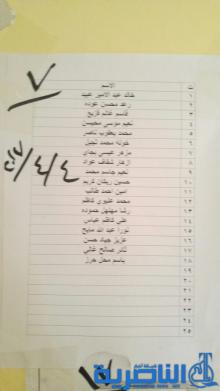 ٧
ت الاسم
١ خالد عبد الامير عبيد
٢ رعد محسن عوده
٣ قاسم غانم فريح
٤ نعيم موسى محيسن
٥ محمد يعقوب ناصر
٦ خوله محمد نجيل
٧ مزهر عيسى بجاي
٨ ازهار شغاف عواد
٩ نعيم جاسم محمد
١٠ حسين ريكان كريم
١١ امين احمد طالب
١٢ محمد عليوي كاظم
١٣ رشا مهلهل حموده
١٤ علي كاظم عباس
١٥ نورا عبد الله مايح
١٦ عزيز جياد حسن
١٧ ثامر صالح غالي
١٨ باسم محل حرز
١٩
٢٠
٢١
٢٢
٢٣
٢٤
٢٥
الناصرية